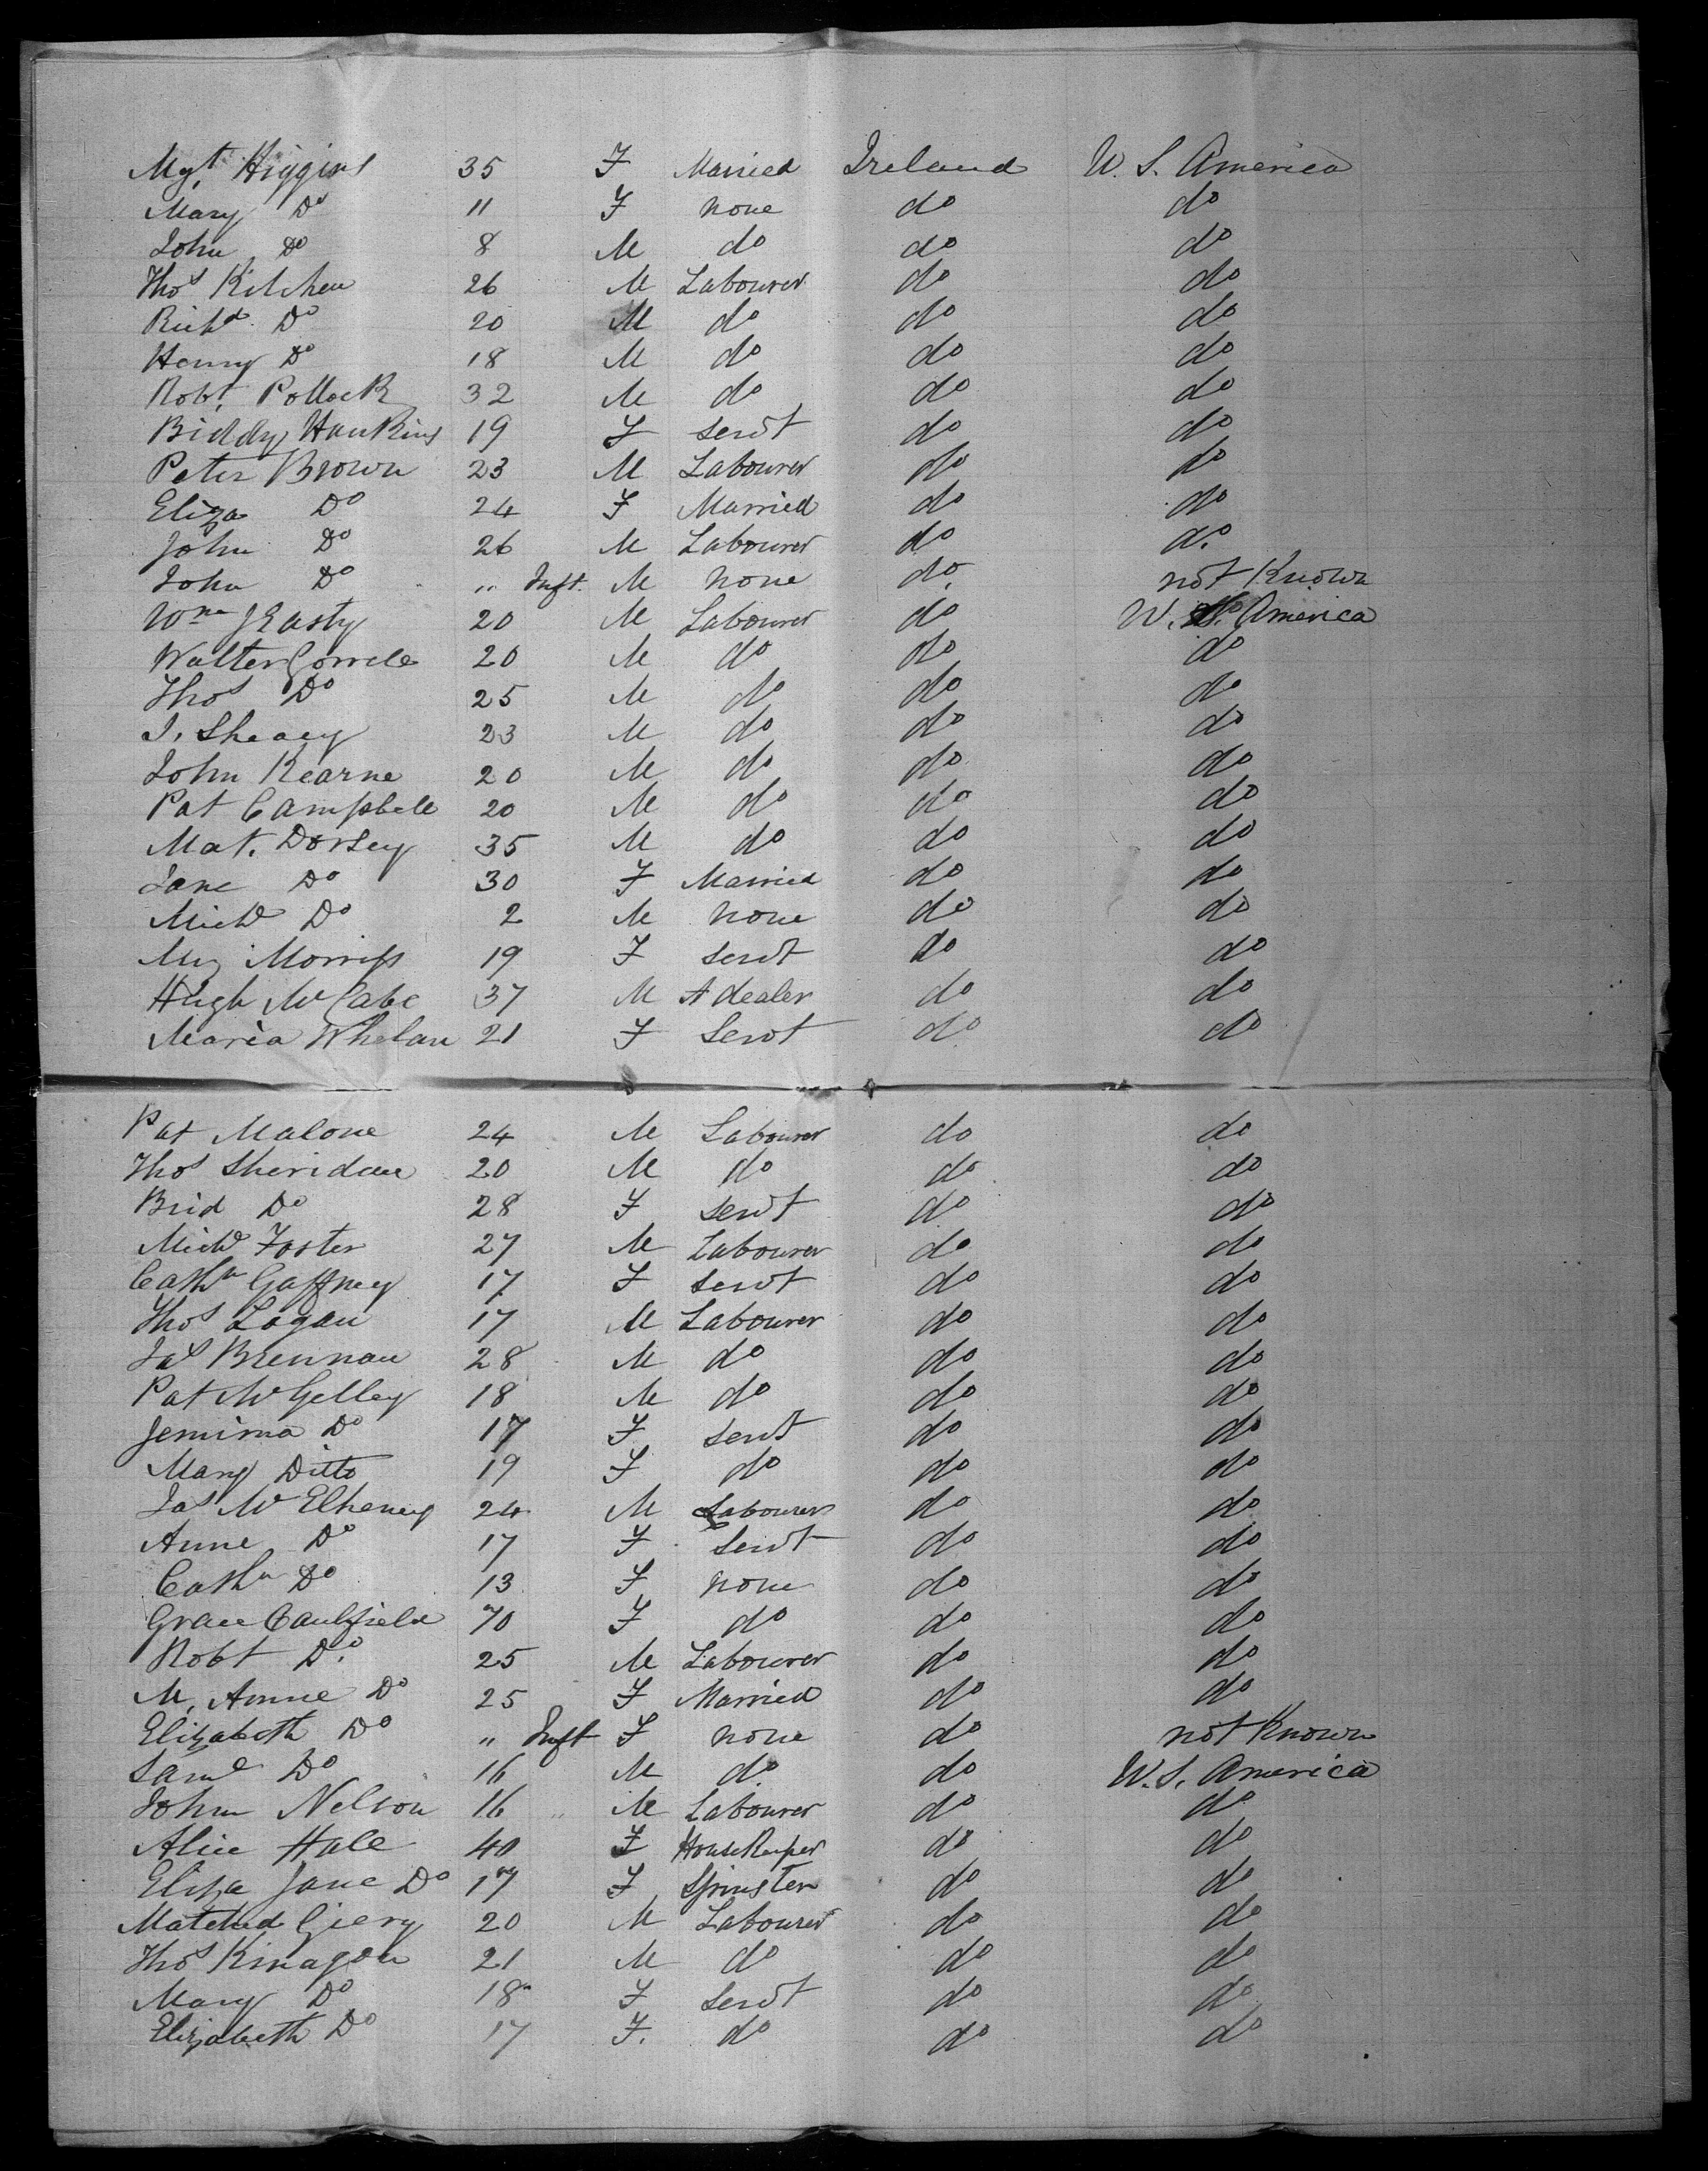 Mgt. Higgins 35 F Married Ireland U. S. America
Mary Do 11 F none do do
John Do 8 M do do do
Thos Kitchen 26 M Labourer do do
Richd. Do 20 M do do do
Henry Do 18 M do do do
Robt. Pollock 32 M do do do
Biddy Hawkins 19 F servt do do
Peter Brown 23 M Labourer do do
Eliza Do 24 F Married do do
John Do 26 M Labourer do do
John Do " Inft. M none do. not Known
Wm 20 M Labourer do U. S. America
Walter 20 M do do do
Thos Do 25 M do do do
J. 23 M do do do
John Kearne 20 M do do do
Pat Campbell 20 M do do do
Mat. Dorsey 35 M do do do
Jane Do 30 F Married do do
Michl Do 2 M none do do
Morriss 19 F servt do do
Hugh McCabe 37 M A dealer do do
Maria Whelan 21 F Servt do do
Pat Malone 24 M Labourer do do
Thos Sheridan 20 M do do do
Brid Do 28 F servt do do
Michl Foster 27 M Labourer do do
Cathn Gaffney 17 F servt do do
Thos Logan 17 M Labourer do do
Jas Brennan 28 M do do do
Pat McGelley 18 M do do do
Jemima Do 17 F servt do do
Mary Ditto 19 F do do do
Jas McElheney 24 M Labourer do do
Anne Do 17 F Servt do do
Cathn Do 13 F none do do
Grace Caulfield 70 F do do do
Robt Do. 25 M Labourer do do
M. Anne Do 25 F Married do do
Elizabeth Do " Inft F none do not Known
Saml Do 16 M do do U. S. America
John Nelson 16 " M Labourer do do
Alice Hall 40 F HouseKeeper do do
Eliza Jane Do 17 F Spinster do do
20 M Labourer do do
Thos Kinagon 21 M do do do
Mary Do 18 F Servt do do
Elizabeth Do 17 F. do do do